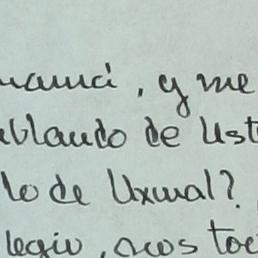 mamá, y me
ablando de Ust
lo de Uxmal?
legio, nos toc